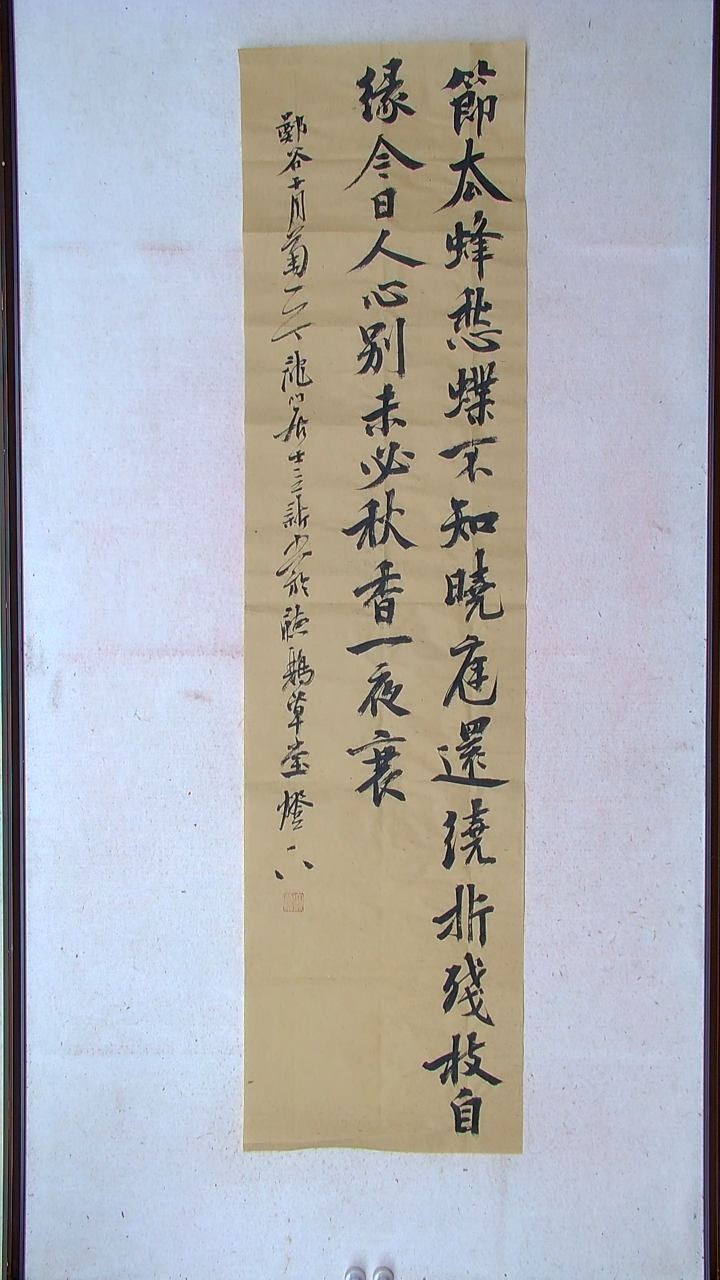 節厺蜂愁蝶不知曉庭還繞折殘枝自
緣今日人心別未必秋香一夜衰
鄭谷十月菊一龍門居士書於聽鵝草堂燈下